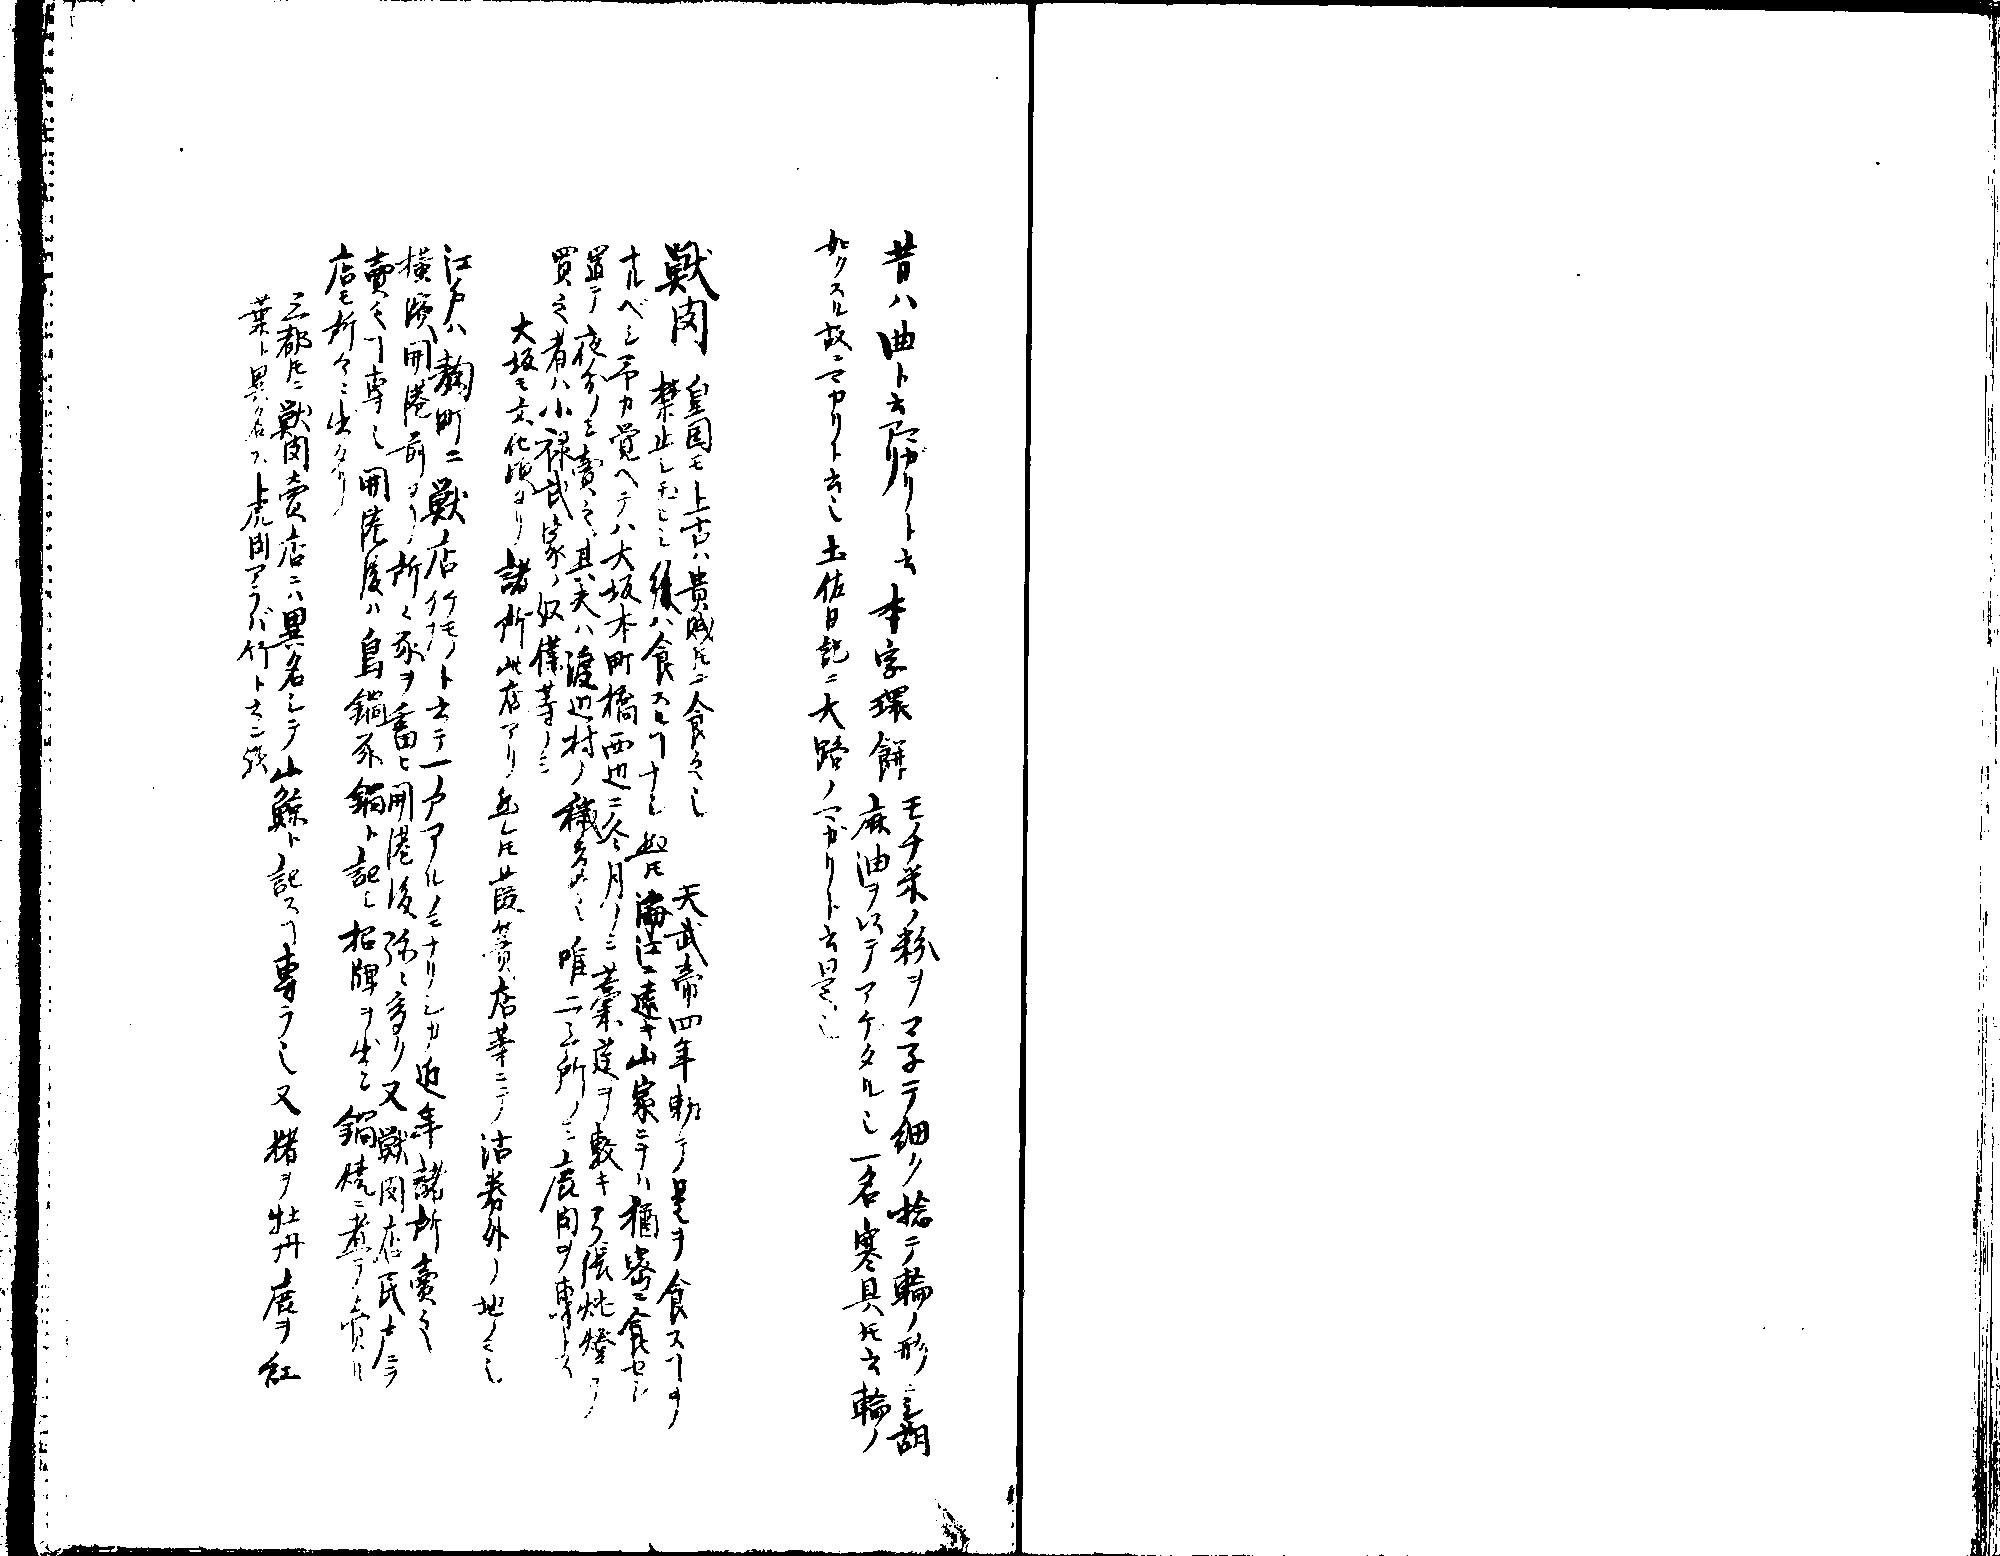 昔ハ曲ト云マガリト云本字環餅モチ米ノ粉ヲマネテ細ク捻テ輪ノ形ニシ胡
麻油ヲ以テアゲタル也一名寒具トモ云輪ノ
如クスル故ニマカリト云也土佐日記ニ大路ノマガリト云是也
獣肉 皇国モ上古ハ貴賤トモニ食之也 天武帝四年勅テ是ヲ食スヿヲ
禁止シ玉ヒシ後ハ食スルヿナシ 然レ𪜈海浜ニ遠キ山家ニテハ猶密ニ食セシ
ナルベシ予カ覚ヘテハ大坂本町橋西辺ニ冬月ノミ藁莚ヲ敷キ
置テ夜分ノミ賣之其夫ハ渡辺村ノ穢多也唯二三所ノミ鹿肉ヲ専トス
買之者ハ小禄武家ノ奴僕等ノミ
大坂モ文化頃ヨリ諸所此店アリ然レトモ葭簀店等ニテ沽券外ノ地ノミ也
江戸ハ麹町ニ獣店ケモノト云テ一戸アルノミナリシカ近年諸所賣之
横浜開港前ヨリ所々豕ヲ畜ヒ開港後弥々多ク又獣肉店民戸ニテ
賣之ヿ専也開港後ハ鳥鍋豕鍋ト記シ招牌ヲ出シ鍋焼ニ煮テ賣ル
店モ所々ニ出タリ
三都トモニ獣肉売店ニハ異名シテ山鯨ト記スヿ専ラ也又猪ヲ牡丹鹿ヲ紅
葉ト異名ス 虎肉アラバ竹ト云ン歟